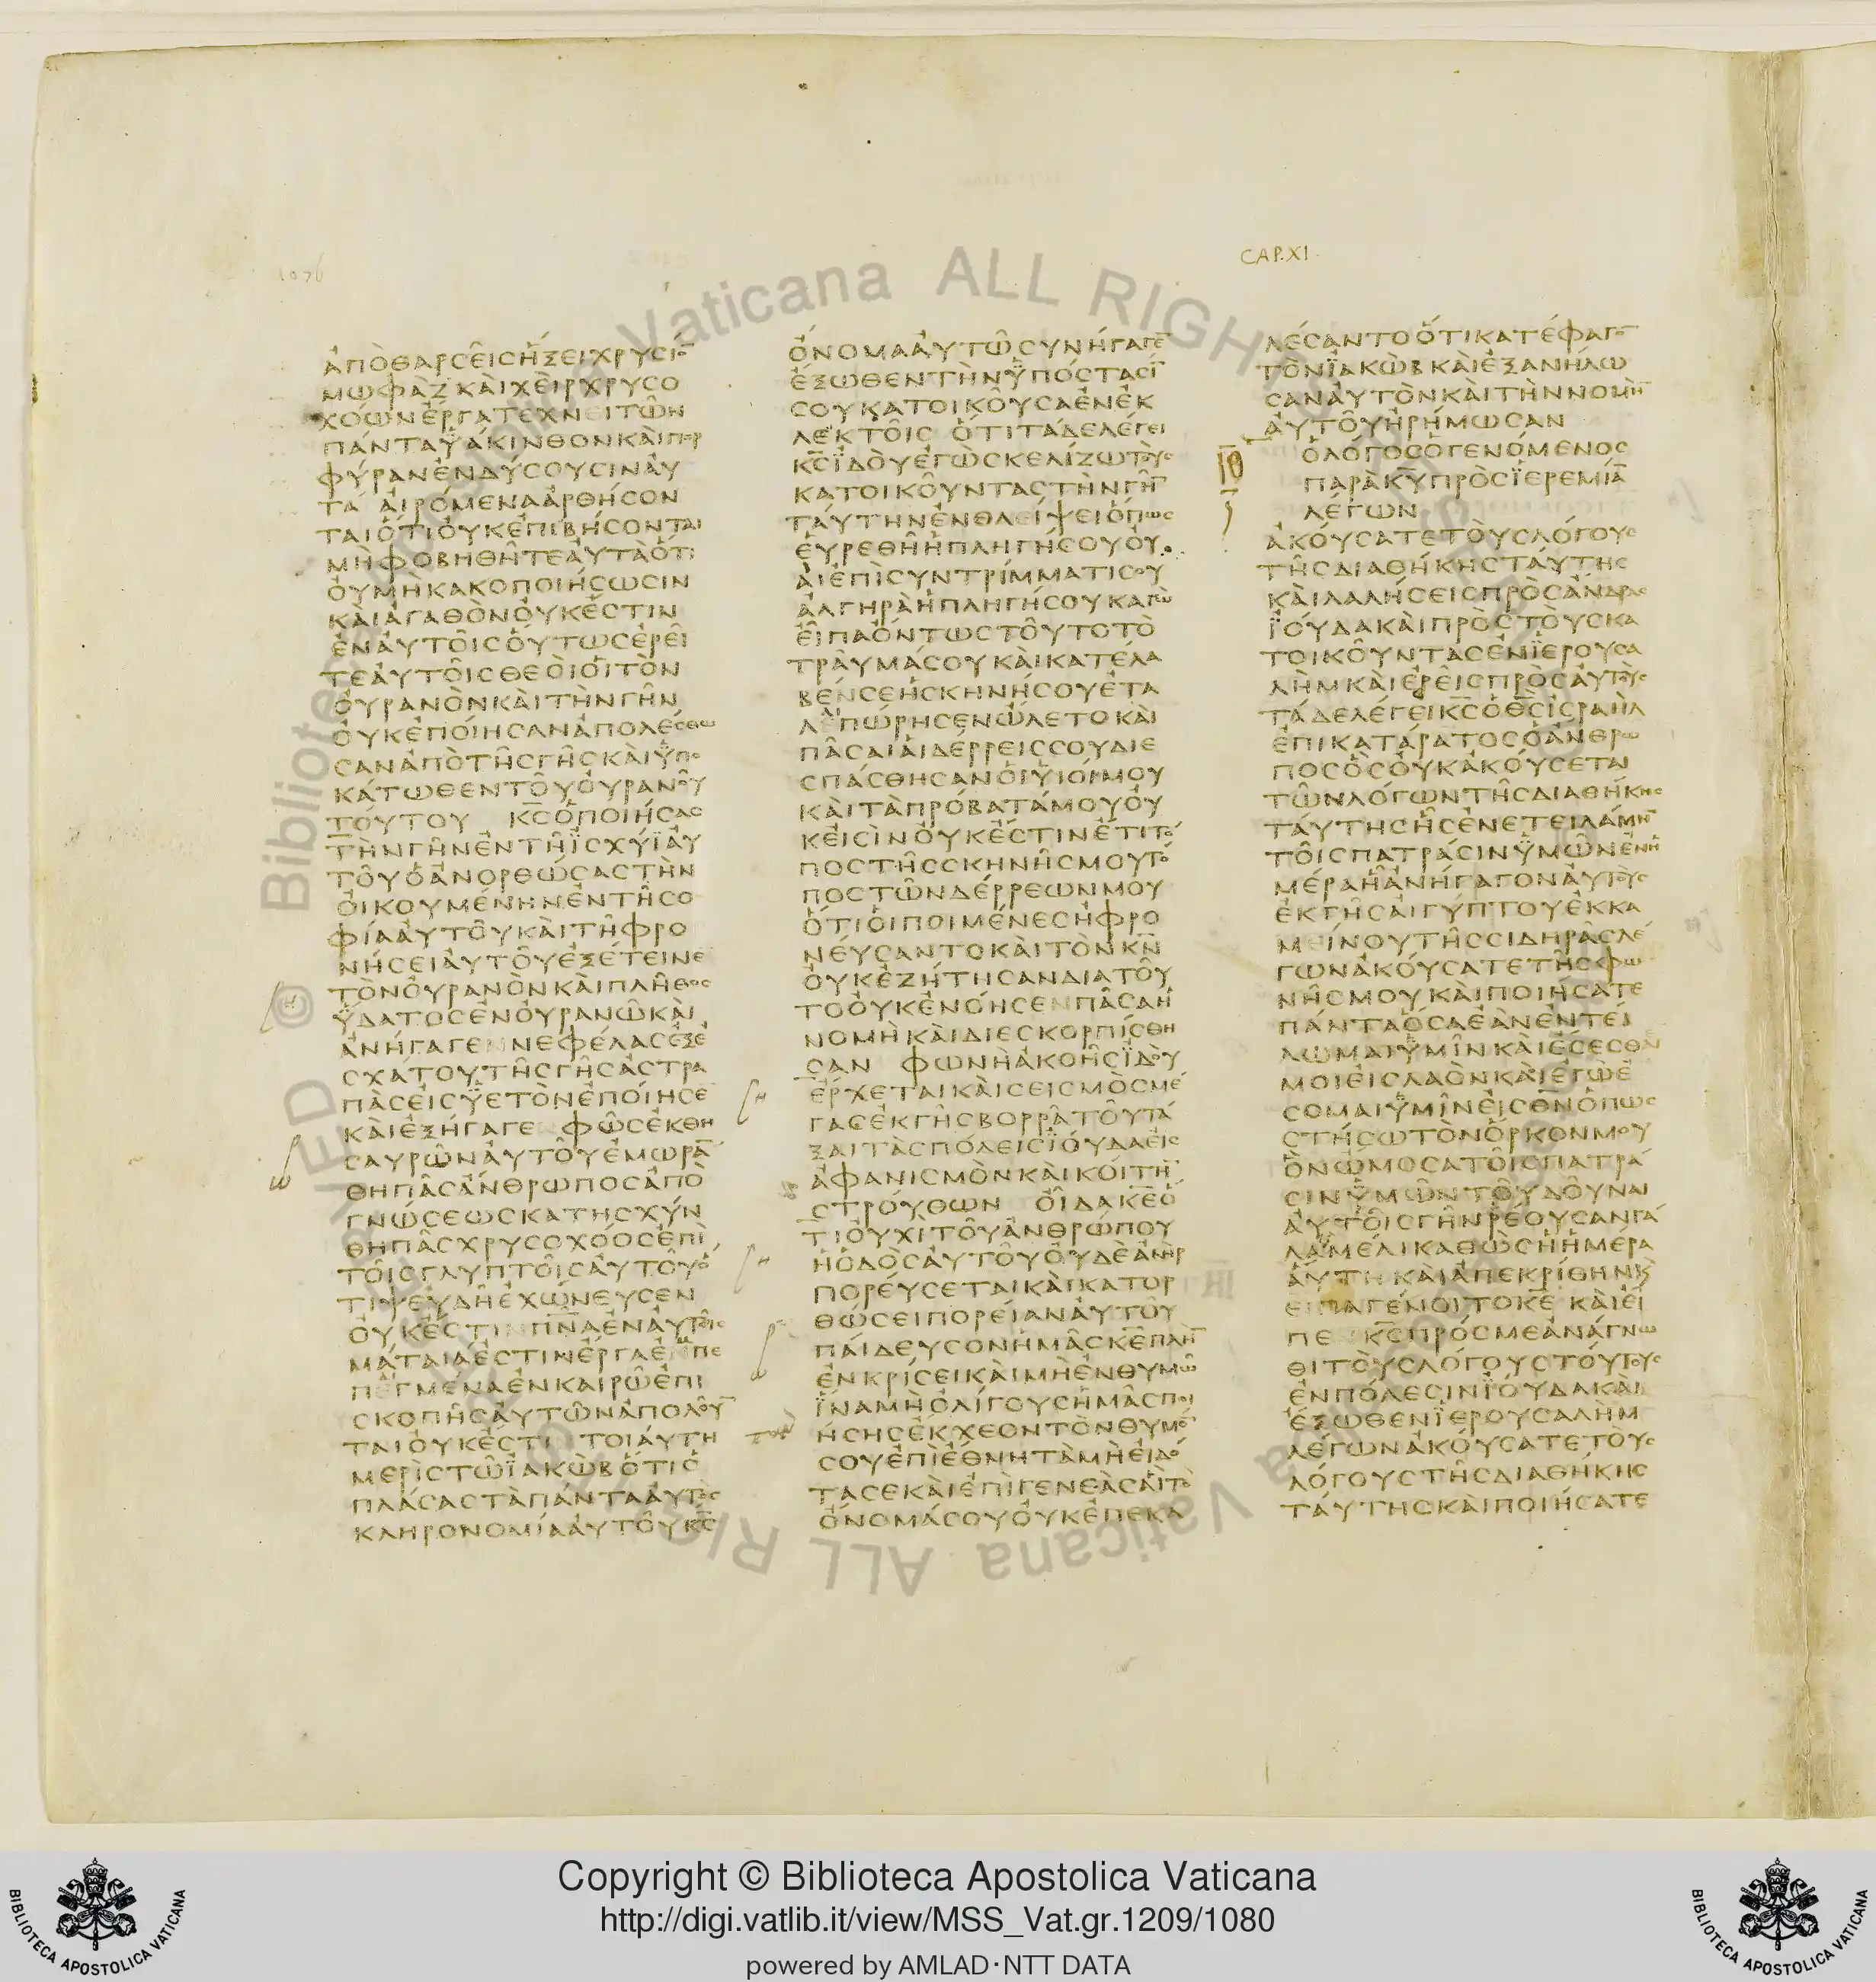 1076
CAP.XI.
ἀπὸθαρσεῖσἥξειχρυσίο̅
μωφαζκαὶχεὶρχρυσο
χόωνἔργατεχνειτῶν
πάνταὑάκινθονκαὶπορ
φύρανἐνδύσουσιναὐ
τά αἰρόμεναἀρθήσον
ταιὅτιοὐκἐπιβήσονται
μὴφοβηθῆτεαὐτὰὅτι
οὐμὴκακοποιήσωσιν
καὶἀγαθὸνοὐκἔστιν
ἐναὐτοῖσοὕτωσἐρεῖ
τεαὐτοῖσθεοὶοἳτὸν
οὐρανὸνκαὶτὴνγῆν
οὐκἐποίησανἀπολέσθω
σανἀπὸτῆσγῆσκαὶὑπο
κάτωθεντοῦοὐρανοῦ
τούτου κ̅σ̅ὁποιήσασ
τὴνγῆνἐντῇἰσχύϊαὐ
τοῦὁἀνορθώσαστὴν
οἰκουμένηνἐντῇσο
φίααὐτοῦκαὶτῇφρο
νήσειαὐτοῦἐξέτεινε
τὸνοὐρανὸνκαὶπλῆθοσ
ὕδατοσἐνοὐρανῶκαὶ
ἀνήγαγεννεφέλασἐξἐ
σχάτουτῆσγῆσἀστρα
πὰσεἰσὑετὸνἐποίησε
καὶἐξήγαγε φῶσἐκθη
σαυρῶναὐτοῦἐμωρά̅
θηπᾶσἄνθρωποσἀπὸ
γνώσεωσκατησχύν
θηπᾶσχρυσοχόοσἐπὶ
τοῖσγλυπτοῖσαὐτοῦὅ
τιψευδῆἐχώνευσεν
οὐκἔστινπ̅ν̅αἐναὐτοῖσ
μάταιάἐστινἔργαἐμπε
πεγμέναἐνκαιρῶἐπι
σκοπῆσαὐτῶνἀπολοῦ̅
ταιοὐκἔστι τοιαύτη
μερὶστῶϊακὼβὅτιὁ
πλάσαστὰπάντααὐτὸσ
κληρονομίααὐτοῦκ̅σ̅
ὄνομααὐτῶσυνήγαγε̅
ἔξωθεντὴνὑπόστασί̅
σουκατοικοῦσαἐνἐκ
λεκτοῖσ ὅτιτάδελέγει
κ̅σ̅ἰδοὺἐγὼσκελίζωτοὺσ
κατοικοῦνταστὴνγῆ̅
ταύτηνἐνθλείψειὅπωσ
εὑρεθῆἡπληγήσουοὐ
αὶἐπὶσυντρίμματίσου
ἀλγηρὰἡπληγήσουκαγὼ
εἶπαὄντωστοῦτοτὸ
τραῦμάσουκαὶκατέλα
βένσεἡσκηνήσουἐτα
λαιπώρησενὤλετοκαὶ
πᾶσαιαἱδέρρεισσουδιε
σπάσθησανοἱυἱοίμου
καὶτὰπρόβατάμουοὐ
κεἰσὶνοὐκἔστινἔτιτό
ποστῆσσκηνῆσμουτό
ποστῶνδέρρεωνμου
ὅτιοἱποιμένεσἠφρο
νεύσαντοκαὶτὸνκ̅ν̅
οὐκἐζήτησανδιατοῦ
τοοὐκἐνόησενπᾶσαἡ
νομὴκαὶδιεσκορπίσθη
σαν φωνὴἀκοῆσἰδοὺ
ἔρχεταικαὶσεισμὸσμέ
γασἐκγῆσβορρᾶτοῦτά
ξαιτὰσπόλεισϊούδαεἰσ
ἀφανισμὸνκαὶκοίτη̅
στρούθων οἶδακ̅ε̅ὅ
τιοὐχιτοῦἀνθρώπου
ἡὁδὸσαὐτοῦοὐδὲἀνὴρ
πορεύσεταικαὶκατορ
θώσειπορείαναὐτοῦ
παίδευσονἡμᾶσκ̅ε̅πλὴ̅
ἐνκρίσεικαὶμὴἐνθυμῶ
ἵναμὴὀλίγουσἡμᾶσποι
ήσησἔκχεοντὸνθυμό̅
σουἐπὶἔθνητὰμὴεἰδό
τασεκαὶἐπὶγενεὰσαἳτὸ
ὄνομάσουοὐκἐπεκα
λέσαντοὅτικατέφαγο̅
τὸνϊακὼβκαὶἐξανήλω
σαναὐτὸνκαὶτὴννομὴ̅
αὐτοῦἠρήμωσαν
ΙΘ
ὁλόγοσὁγενόμενοσ
παρὰκ̅υ̅πρὸσϊερεμία̅
λέγων
ἀκούσατετοὺσλόγουσ
τῆσδιαθήκησταύτησ
καὶλαλήσεισπρὸσἄνδρασ
ϊούδακαὶπρὸστοὺσκα
τοικοῦντασἐνϊερουσα
λὴμκαὶἐρεῖσπρὸσαὐτοὺσ
τάδελέγεικ̅σ̅ὁθ̅σ̅ἰσραὴλ
ἐπικατάρατοσὁἄνθρω
ποσὃσοὐκἀκούσεται
τῶνλόγωντῆσδιαθήκησ
ταύτησἧσἐνετειλάμη̅
τοῖσπατράσινὑμῶνἐνἡ
μέραἧἀνήγαγοναὐτοὺσ
ἐκγῆσαἰγύπτουἐκκα
μείνουτῆσσιδηρᾶσλέ
γωνἀκούσατετῆσφω
νῆσμουκαὶποιήσατε
πάνταὅσαἐὰνἐντεί
λωμαιὑμῖνκαὶἔσεσθε
μοιεἰσλαὸνκαὶἐγὼἔ
σομαιὑμῖνεἰσθ̅ν̅ὅπωσ
στήσωτὸνὅρκονμου
ὃνὤμοσατοῖσπατρά
σινὑμῶντοῦδοῦναι
αὐτοῖσγῆνῥέουσανγά
λαμέλικαθὼσἡἡμέρα
αὕτηκαὶἀπεκρίθηνκαὶ
εἶπαγένοιτοκ̅ε̅ καὶεἶ
πε κ̅σ̅πρόσμεἀνάγνω
θιτοὺσλόγουστούτουσ
ἐνπόλεσινϊούδακαὶ
ἔξωθενϊερουσαλὴμ
λέγωνἀκούσατετοὺσ
λόγουστῆσδιαθήκησ
ταύτησκαὶποιήσατε
Copyright © Biblioteca Apostolica Vaticana
http://digi.vatlib.it/view/MSS_Vat.gr.1209/1080
powered by AMLAD·NTT DATA
BIBLIOTECA APOSTOLICA VATICANA
BIBLIOTECA APOSTOLICA VATICANA